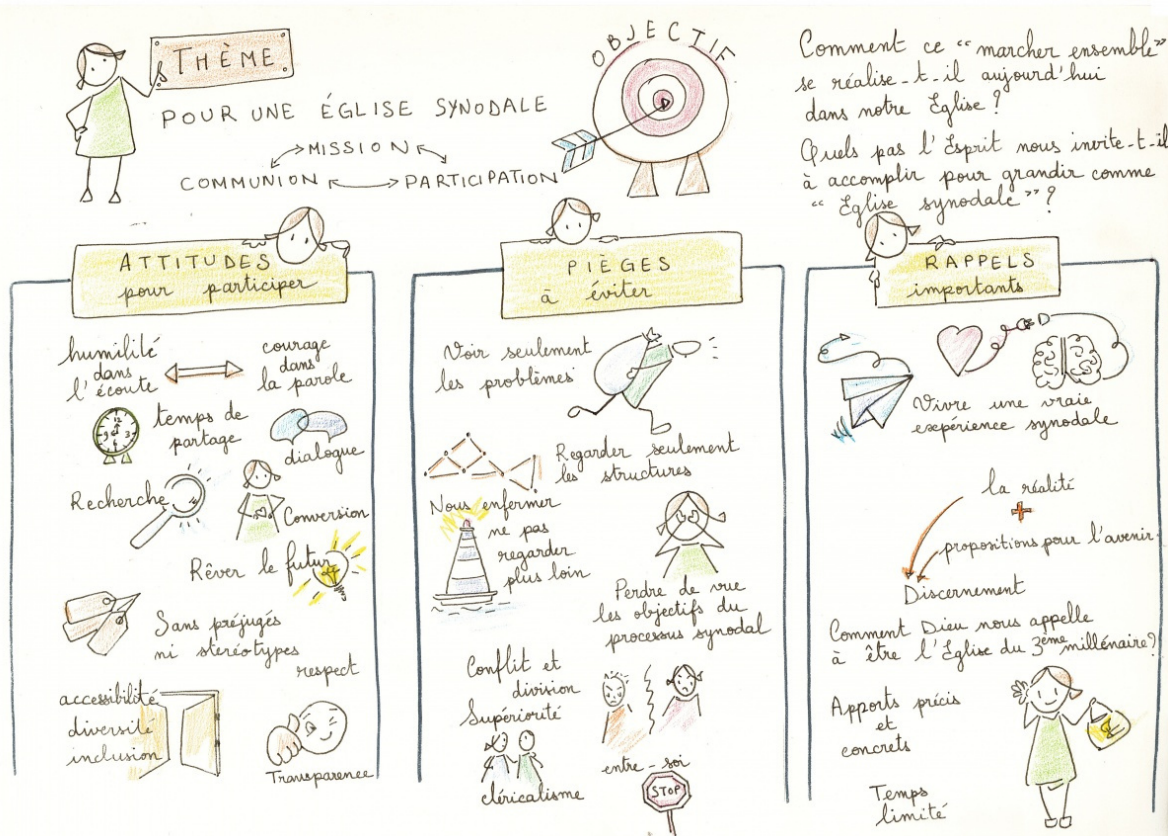 THÈME
POUR UNE ÉGLISE SYNODALE
MISSION
COMMUNION
PARTICIPATION
OBJECTIF
Comment ce "marcher ensemble"
se réalise-t-il aujourd'hui
dans notre Église ?
Quels pas l'Esprit nous invite-t-il
à accomplir pour grandir comme
"Église synodale" ?
ATTITUDES
pour participer
humilité
dans
l'écoute
courage
dans
la parole
12
3
6
9
temps de
partage
dialogue
Recherche
Conversion
Rêver le futur
Sans préjugés
ni stéréotypes
respect
accessibilité
diversité
inclusion
Transparence
PIÈGES
à éviter
Voir seulement
les problèmes
Regarder seulement
les structures
Nous enfermer
ne pas
regarder
plus loin
Perdre de vue
les objectifs du
processus synodal
Conflit et
division
Supériorité
cléricalisme
entre-soi
STOP
RAPPELS
importants
Vivre une vraie
expérience synodale
la réalité
+
propositions pour l'avenir
Discernement
Comment Dieu nous appelle
à être l'Église du 3ème millénaire?
Apports précis
et
concrets
Temps
limité